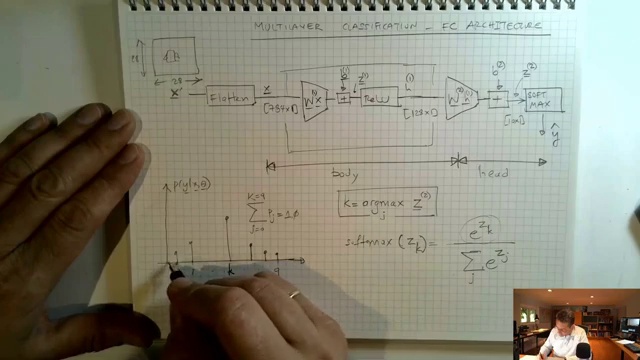 MULTILAYER CLASSIFICATION - FC ARCHITECTURE
28
28
x
Flatten
x
[784x1]
W⁽¹⁾x
b⁽¹⁾
+
z⁽¹⁾
ReLU
h⁽¹⁾
[128x1]
W⁽²⁾h⁽¹⁾
b⁽²⁾
+
z⁽²⁾
[10x1]
SOFT
MAX
ŷ
body
head
p(y|x,θ)
K=9
∑ Pj = 1.0
j=0
k = argmax z⁽²⁾
j
softmax (z_k) = e^{z_k}
∑ e^{z_j}
j
k
9